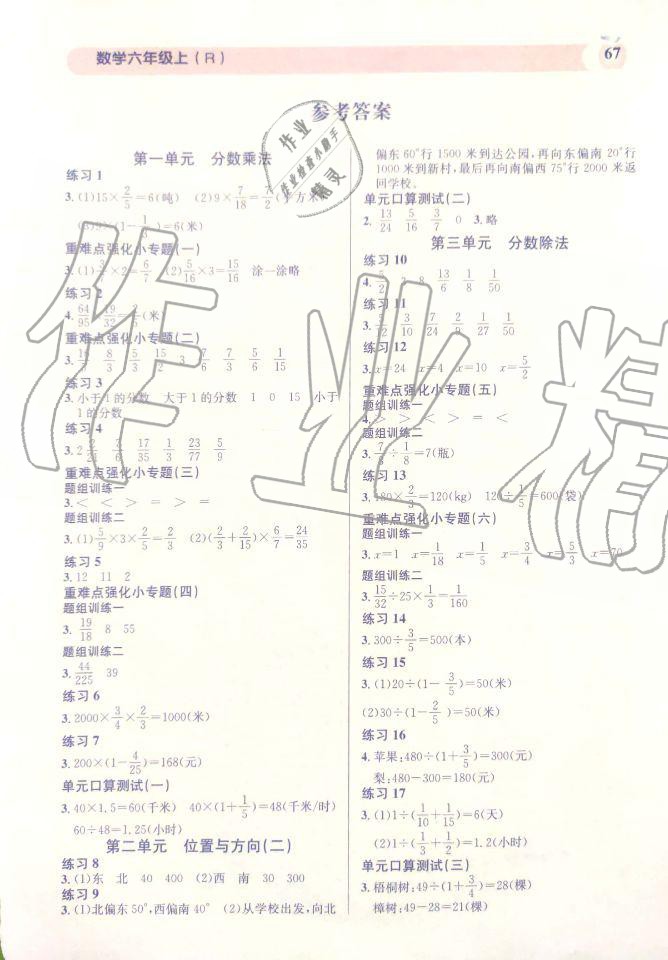 数学六年级上(R)
67
参考答案
第一单元 分数乘法
练习1
3.(1)15×2/5=6(吨) (2)9×7/18=7/2(平方米)
=6(米)
重难点强化小专题(一)
3.(1)3/7×2=6/7 (2)5/16×3=15/16 涂一涂略
练习2
4. 64/95 19/32
重难点强化小专题(二)
8/3 5/3 15/2 3 7/6 7/3 5/6 1/15
练习3
3.小于1的分数 大于1的分数 1 0 15 小于
1的分数
练习4
3.2 2/21 3/6 17/35 1/3 23/77 5/9
重难点强化小专题(三)
题组训练一
3.< < > = > =
题组训练二
3.(1)5/9×3×2/5=2/3 (2)(2/3+2/15)×6/7=24/35
练习5
3.12 11 2
重难点强化小专题(四)
题组训练一
3. 19/18 8 55
题组训练二
3. 44/225 39
练习6
3.2000×3/4×2/3=1000(米)
练习7
3.200×(1-4/25)=168(元)
单元口算测试(一)
3.40×1.5=60(千米) 40×(1+1/5)=48(千米/时)
60÷48=1.25(小时)
第二单元 位置与方向(二)
练习8
3.(1)东 北 40 400 (2)西 南 30 300
练习9
3.(1)北偏东50°,西偏南40° (2)从学校出发,向北
偏东60°行1500米到达公园,再向东偏南20°行
1000米到新村,最后再向南偏西75°行2000米返
回学校。
单元口算测试(二)
2. 13/24 5/16 3/7 0 3.略
第三单元 分数除法
练习10
4. 5/2 3 8 13/6 1/8 1/50
练习11
3. 5/2 3/10 7/24 2/9 1/27 1/50
练习12
3.x=24 x=4 x=10 x=5/2
重难点强化小专题(五)
题组训练一
4.> > < > = <
题组训练二
3. 7/8÷1/8=7(瓶)
练习13
3.180×2/3=120(kg) 120÷1/5=600(袋)
重难点强化小专题(六)
题组训练一
3.x=1 x=1/18 x=1/5 x=3/4 x=5/3 x=70
题组训练二
3. 15/32÷25×1/3=1/160
练习14
3.300÷3/5=500(本)
练习15
3.(1)20÷(1-3/5)=50(米)
(2)30÷(1-2/5)=50(米)
练习16
4.苹果:480÷(1+3/5)=300(元)
梨:480-300=180(元)
练习17
3.(1)1÷(1/10+1/15)=6(天)
(2)1÷(1/3+1/2)=1.2(小时)
单元口算测试(三)
3.梧桐树:49÷(1+3/4)=28(棵)
樟树:49-28=21(棵)
作业
作业检查小助手
精灵
作业精